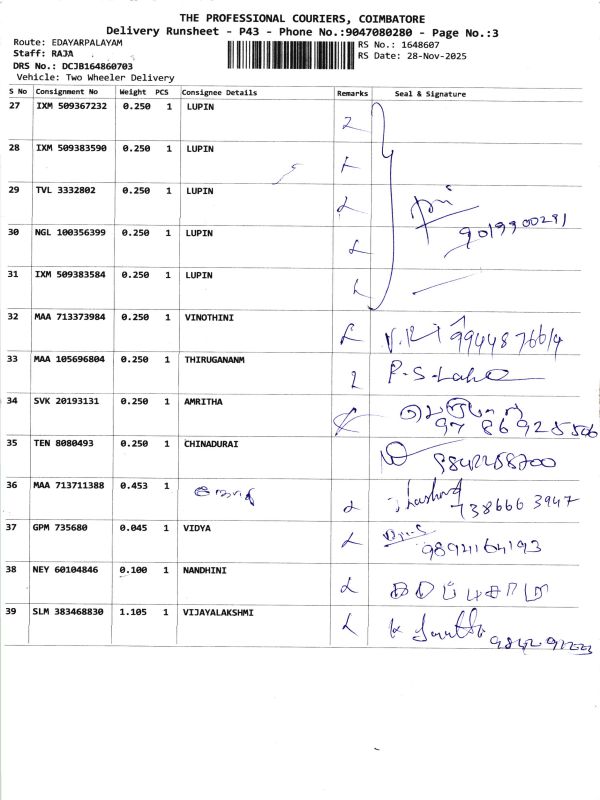 THE PROFESSIONAL COURIERS, COIMBATORE
Delivery Runsheet - P43 - Phone No.:9047080280 - Page No.:3
Route: EDAYARPALAYAM
RS No.: 1648607
Staff: RAJA
RS Date: 28-Nov-2025
DRS No.: DCJB164860703
Vehicle: Two Wheeler Delivery
S No Consignment No Weight PCS Consignee Details Remarks Seal & Signature
27 IXM 509367232 0.250 1 LUPIN
28 IXM 509383590 0.250 1 LUPIN
29 TVL 3332802 0.250 1 LUPIN
30 NGL 100356399 0.250 1 LUPIN
31 IXM 509383584 0.250 1 LUPIN
32 MAA 713373984 0.250 1 VINOTHINI
33 MAA 105696804 0.250 1 THIRUGANANM
34 SVK 20193131 0.250 1 AMRITHA
35 TEN 8080493 0.250 1 CHINADURAI
36 MAA 713711388 0.453 1
738666 3947
37 GPM 735680 0.045 1 VIDYA
9894164193
38 NEY 60104846 0.100 1 NANDHINI
39 SLM 383468830 1.105 1 VIJAYALAKSHMI